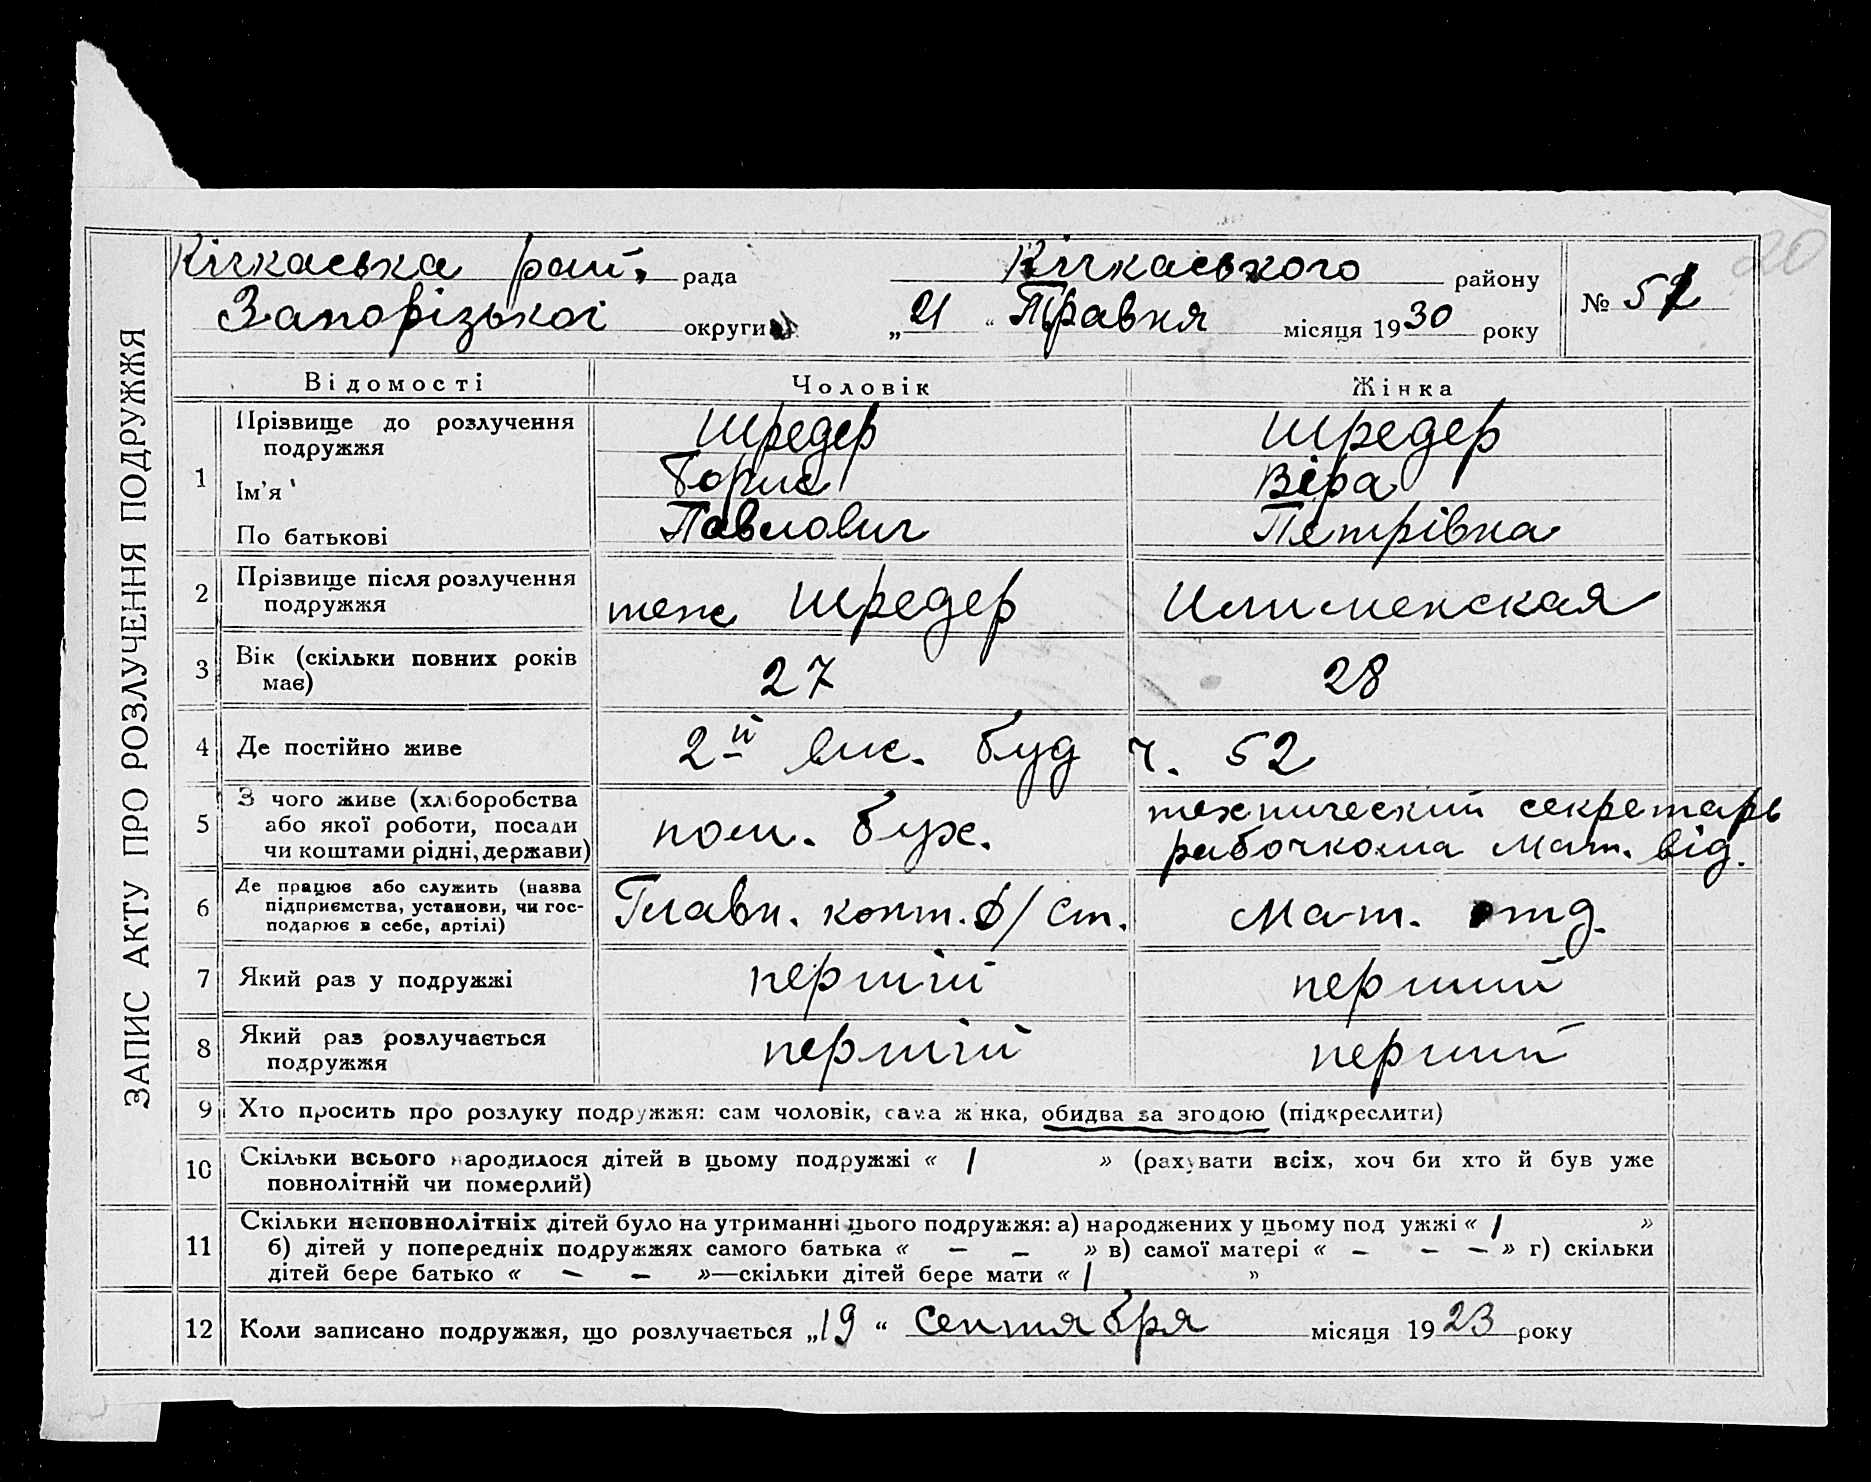 20
Кічкаська рай. рада Кічкаського району
Запорізької округи „21“ Травня місяця 1930 року № 52
ЗАПИС АКТУ ПРО РОЗЛУЧЕННЯ ПОДРУЖЖЯ
Відомості Чоловік Жінка
1 Прізвище до розлучення подружжя Шредер Шредер
Ім’я Борис Віра
По батькові Павлович Петрівна
2 Прізвище після розлучення подружжя теж Шредер Илименская
3 Вік (скільки повних років має) 27 28
4 Де постійно живе 2й вис. буд ч. 52
5 З чого живе (хліборобства
або якої роботи, посади
чи коштами рідні, держави) пом. бух. технический секретарь
рабочкома Мат. від.
6 Де працює або служить (назва
підприємства, установи, чи гос-
подарює в себе, артілі) Главн. конт. Ф/Ст. Мат. отд.
7 Який раз у подружжі перший перший
8 Який раз розлучається
подружжя перший перший
9 Хто просить про розлуку подружжя: сам чоловік, сама жінка, обидва за згодою (підкреслити)
10 Скільки всього народилося дітей в цьому подружжі « 1 » (рахувати всіх, хоч би хто й був уже
повнолітній чи померлий)
11 Скільки неповнолітніх дітей було на утриманні цього подружжя: а) народжених у цьому подружжі « 1 »
б) дітей у попередніх подружжях самого батька « – – » в) самої матері « – – – » г) скільки
дітей бере батько « – – »—скільки дітей бере мати « 1 »
12 Коли записано подружжя, що розлучається „19“ Сентября місяця 1923 року